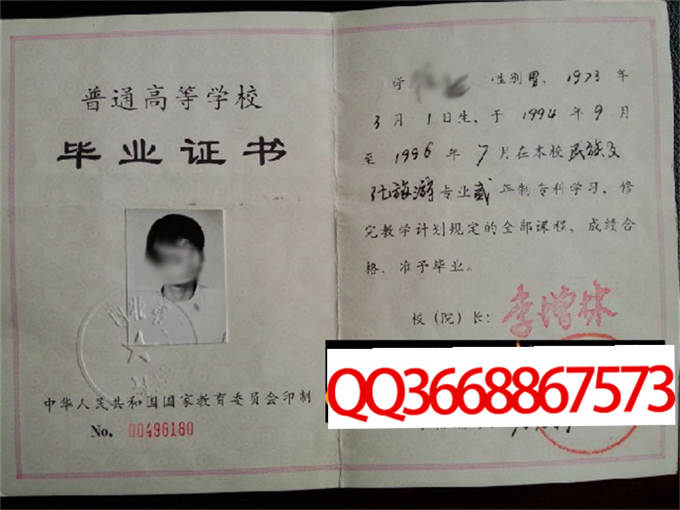 普通高等学校
毕业证书
中华人民共和国国家教育委员会印制
No. 00496180
学 性别男、1973年
3月1日生，于1994年9月
至1996年7月在本校民族文
化旅游专业贰年制专科学习，修
完教学计划规定的全部课程，成绩合
格，准予毕业。
校（院）长：李增林
QQ3668867573